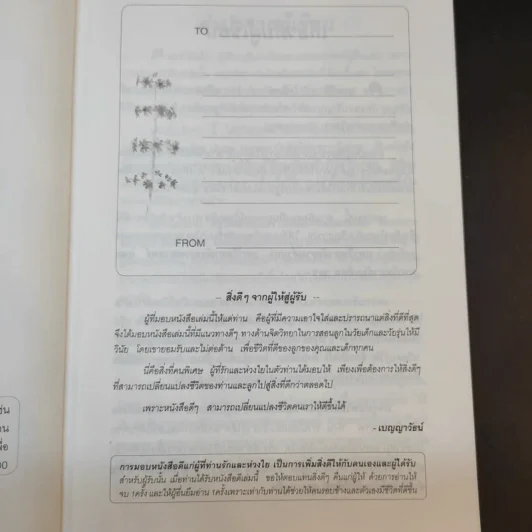 TO
FROM
-- สิ่งดีๆ จากผู้ให้สู่ผู้รับ --
ผู้ที่มอบหนังสือเล่มนี้ให้แด่ท่าน คือผู้ที่มีความเอาใจใส่และปรารถนาแต่สิ่งที่ดีที่สุด
จึงได้มอบหนังสือเล่มนี้ที่มีแนวทางดีๆ ทางด้านจิตวิทยาในการสอนลูกในวัยเด็กและวัยรุ่นให้มี
วินัย โดยเขายอมรับและไม่ต่อต้าน เพื่อชีวิตที่ดีของลูกของคุณและเด็กทุกคน
นี่คือสิ่งที่คนพิเศษ ผู้ที่รักและห่วงใยในตัวท่านได้มอบให้ เพียงเพื่อต้องการให้สิ่งดีๆ
ที่สามารถเปลี่ยนแปลงชีวิตของท่านและลูกไปสู่สิ่งที่ดีกว่าตลอดไป
เพราะหนังสือดีๆ สามารถเปลี่ยนแปลงชีวิตคนเราให้ดีขึ้นได้
- เบญญาวัธน์
การมอบหนังสือดีแก่ผู้ที่ท่านรักและห่วงใย เป็นการเพิ่มสิ่งดีให้กับตนเองและผู้ได้รับ
สำหรับผู้รับนั้น เมื่อท่านได้รับหนังสือเล่มนี้ ขอให้ตอบแทนสิ่งดีๆ คืนแก่ผู้ให้ ด้วยการอ่านให้
จบ 1 ครั้ง และให้ผู้อื่นยืมอ่าน 1 ครั้ง เพราะเท่ากับท่านได้ช่วยให้คนรอบข้างและตัวเองมีชีวิตที่ดีขึ้น